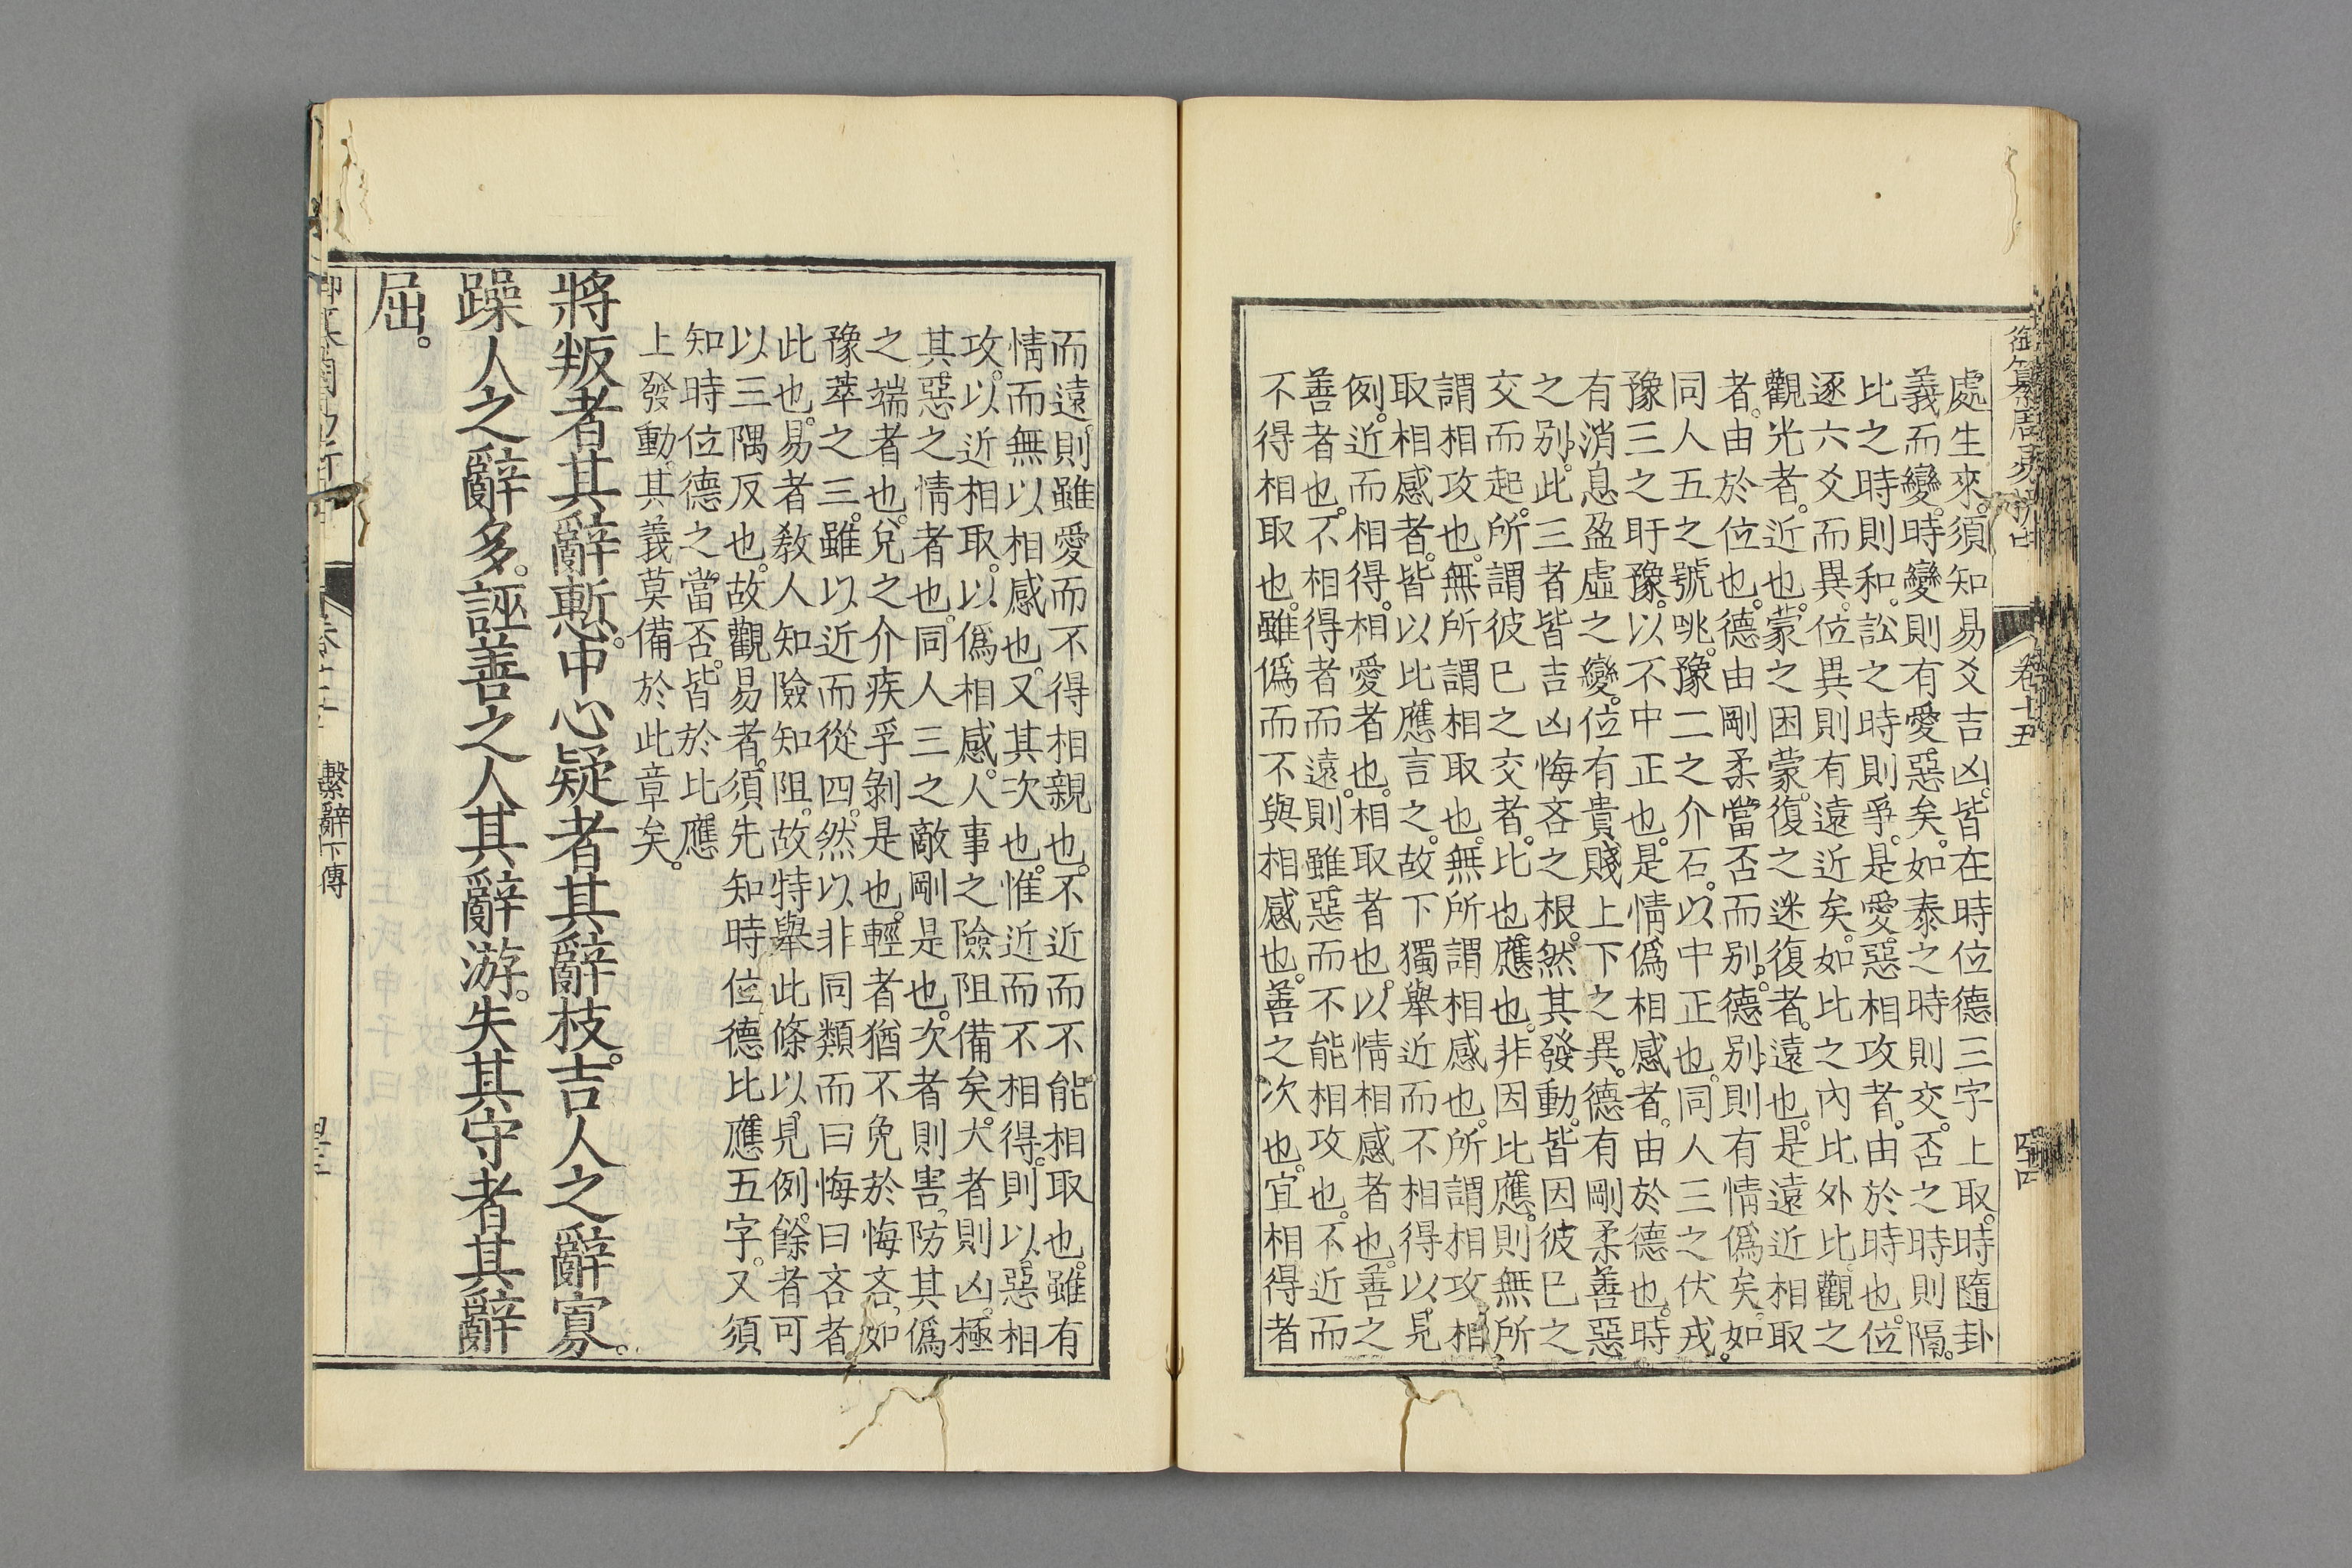 御纂周易折中
卷十五
處生來。須知易爻吉凶。皆在時位德三字上取。時隨卦
義而變。時變則有愛惡矣。如泰之時則交。否之時則隔。
比之時則和。訟之時則爭。是愛惡相攻者。由於時也。位
逐六爻而異。位異則有遠近矣。如比之內比外比。觀之
觀光者。近也。蒙之困蒙。復之迷復者。遠也。是遠近相取
者。由於位也。德由剛柔當否而別。德別則有情偽矣。如
同人五之號咷。豫二之介石。以中正也。同人三之伏戎。
豫三之盱豫。以不中正也。是情偽相感者。由於德也。時
有消息盈虛之變。位有貴賤上下之異。德有剛柔善惡
之別。此三者皆吉凶悔吝之根。然其發動。皆因彼已之
交而起。所謂彼已之交者。比也應也。非因比應。則無所
謂相攻也。無所謂相取也。無所謂相感也。所謂相攻相
取相感者。皆以比應言之。故下獨舉近而不相得以見
例。近而相得。相愛者也。相取者也。以情相感者也。善之
善者也。不相得者而遠。則雖惡而不能相攻也。不近而
不得相取也。雖偽而不與相感也。善之次也。宜相得者
而遠。則雖愛而不得相親也。不近而不能相取也。雖有
情而無以相感也。又其次也。惟近而不相得。則以惡相
攻。以近相取。以偽相感。人事之險阻備矣。大者則凶。極
其惡之情者也。同人三之敵剛是也。次者則害。防其偽
之端者也。兌之介疾孚剝是也。輕者猶不免於悔吝。如
豫萃之三。雖以近而從四。然以非同類而曰悔曰吝者
此也。易者教人知險知阻。故特舉此條以見例。餘者可
以三隅反也。故觀易者。須先知時位德比應五字。又須
知時位德之當否。皆於比應
上發動。其義莫備於此章矣。
將叛者其辭慙。中心疑者其辭枝。吉人之辭寡。
躁人之辭多。誣善之人其辭游。失其守者其辭
屈。
繫辭下傳